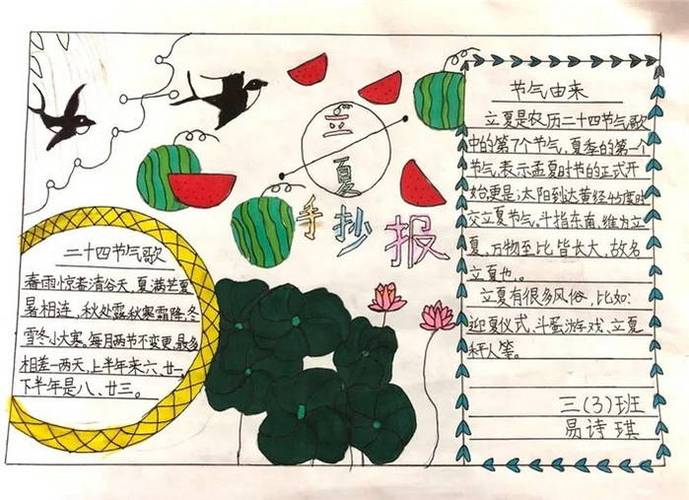 立夏
手抄报
二十四节气歌
春雨惊春清谷天、夏满芒夏
暑相连，秋处露秋寒霜降、冬
雪冬小大寒，每月两节不变更，最多
相差一两天，上半年来六、廿一
下半年是八、廿三。
节气由来
立夏是农历二十四节气歌
中的第7个节气，夏季的第一个
节气，表示孟夏时节的正式开
始更是：太阳到达黄经45度时
交立夏节气。斗指东南，维为立
夏，万物至比，皆长大，故名
立夏也。
立夏有很多风俗，比如：
迎夏仪式、斗蛋游戏、立夏
秤人等。
三(3)班
易诗琪